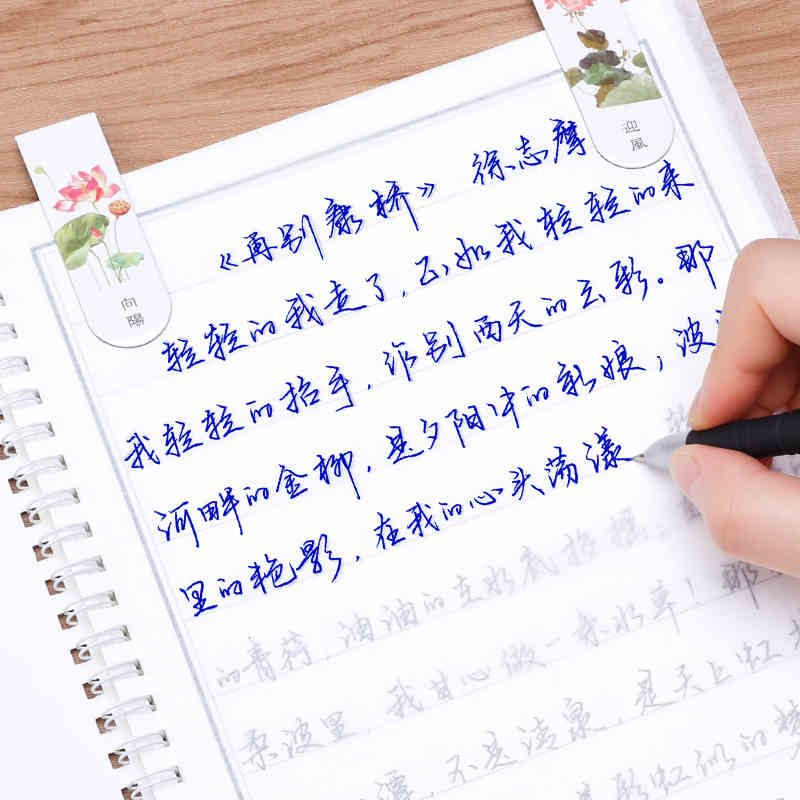 《再别康桥》 徐志摩
轻轻的我走了，正如我轻轻的来
我轻轻的招手，作别西天的云彩。那
河畔的金柳，是夕阳中的新娘；波
里的艳影，在我的心头荡漾
的青荇，油油的在水底招摇；
柔波里，我甘心做一条水草！那
潭，不是清泉，是天上虹
彩虹似的梦
向陽
迎風